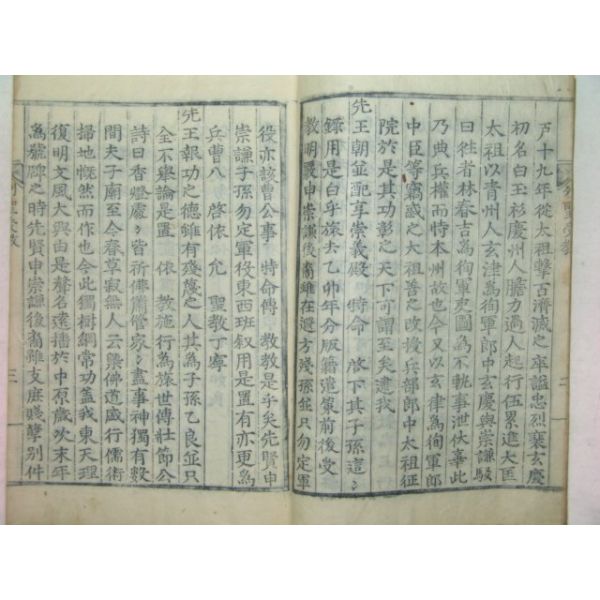 戶十九年從太祖擊百濟滅之卒謚忠烈裴玄慶
初名白玉衫慶州人膽力過人起行伍累進大匡
太祖以青州人玄津爲徇軍郎中玄慶與崇謙駁
曰往者林春吉爲徇軍吏圖爲不軌事泄伏辜此
乃典兵權而特本州故也今又以玄律爲徇軍郎
中臣等竊惑之太祖善之改授兵部郎中太祖征
院於是其功彰之天下可謂至矣逮我
先王朝並配享崇義殿 特命 啓下其子孫這〻
錄用是白乎旀去乙卯年分版籍張策前後受
教明是申崇謙後裔雖在遐方殘孫並只勿定軍
役亦該曹公事 特命傳 教教是乎矣先賢申
崇謙子孫勿定軍役東西班叙用是置有亦更爲
兵曹入 啓依 允 聖教丁寧
先王報功之德雖有殘蔑之人其爲子孫乙良並只
全不舉論是置 依 教施行爲旅世傳壯節公
詩曰香燈處〻皆祈佛簫管家〻盡事神獨有數
間夫子廟至今春草寂無人云槩佛道盛行儒術
掃地慨然而作也今此獨樹綱常功盖我東天理
復明文風大興由是聲名遠播於中原歲次末年
爲號牌之時先賢申崇謙後裔雖支庶賤孽別件